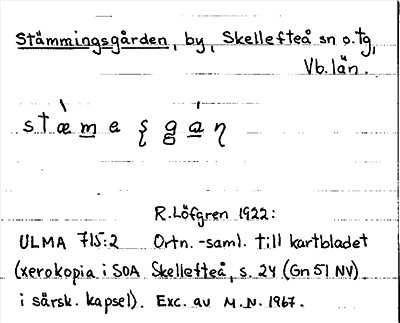 Stämmingsgården, by, Skellefteå sn o. tg,
Vb. län.
R. Löfgren 1922:
ULMA 715:2 Ortn.-saml. till kartbladet
(xerokopia i SOA Skellefteå, s. 24 (Gn 51 NV)
i särsk. kapsel). Exc. av M.N. 1967.